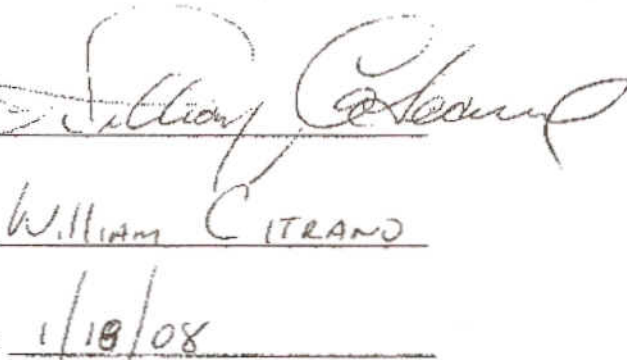 William Citrano
William CITRANO
1/18/08